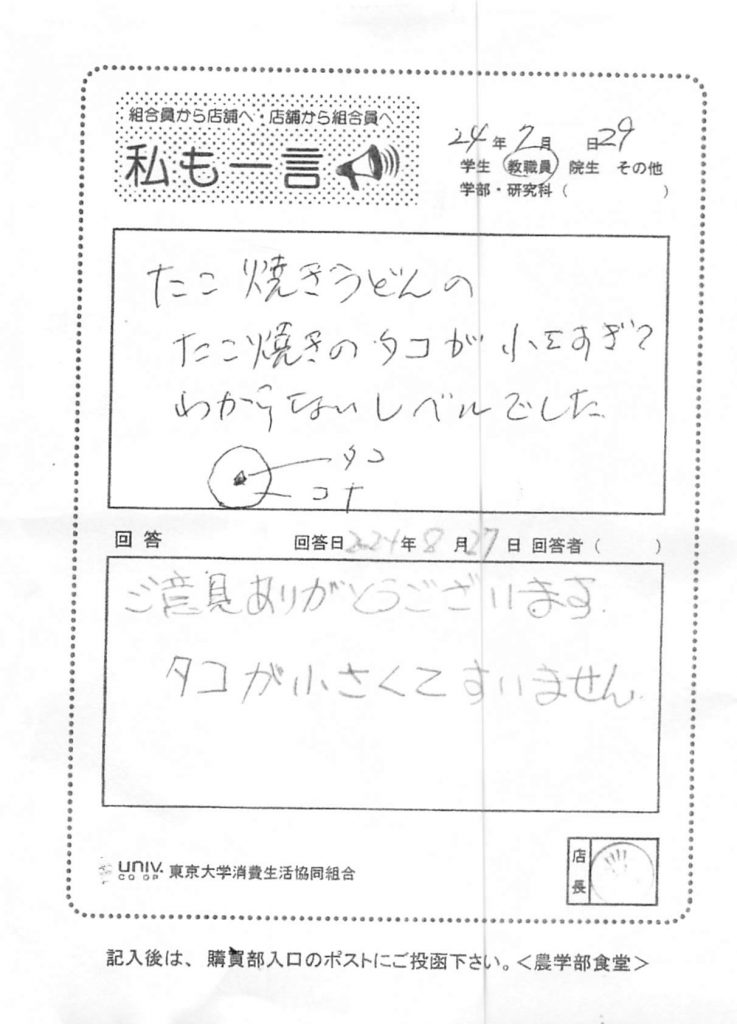 組合員から店舗へ・店舗から組合員へ
私も一言
24年7月 日29
学生 教職員 院生 その他
学部・研究科( )
たこ焼きうどんの
たこ焼きのタコが小さすぎて
わからないレベルでした
タコ
コナ
回答 回答日2024年8月27日 回答者( )
ご意見ありがとうございます.
タコが小さくてすいません.
UNIV.
CO-OP
東京大学消費生活協同組合
店長
記入後は、購買部入口のポストにご投函下さい。<農学部食堂>